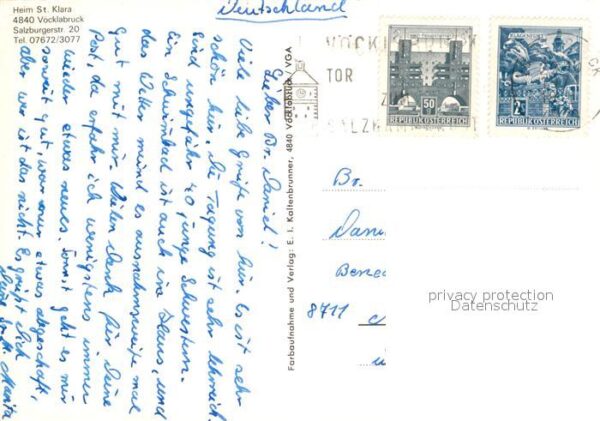 Heim St. Klara
4840 Vöcklabruck
Salzburgerstr. 20
Tel. 07672/3077
Deutschland
Lieber Br. Daniel!
Viele liebe Grüße von hier. Es ist sehr
schön hier. Die Tagung ist sehr lehrreich.
Sind ungefähr 40 junge Schwestern.
Ein Schwimbad ist auch im Haus, und
das Wetter meind es ausnahmsweise mal
gut mit mir. Vielen Dank für Deine
Post, da erfahr ich wenigstens immer
wieder etwas neues. Sonst geht es mir
soweit gut, war nur etwas abgeschafft,
aber wer ist das nicht. Es grüßt Dich
Farbaufnahme und Verlag: E. I. Kaltenbrunner, 4840 Vöcklabruck / VGA
VÖCKL
TOR
Z
SALZKA
50
REPUBLIK ÖSTERREICH
KLAGENFURT
2
REPUBLIK ÖSTERREICH
Br.
Dani
Bened
8711
privacy protection
Datenschutz